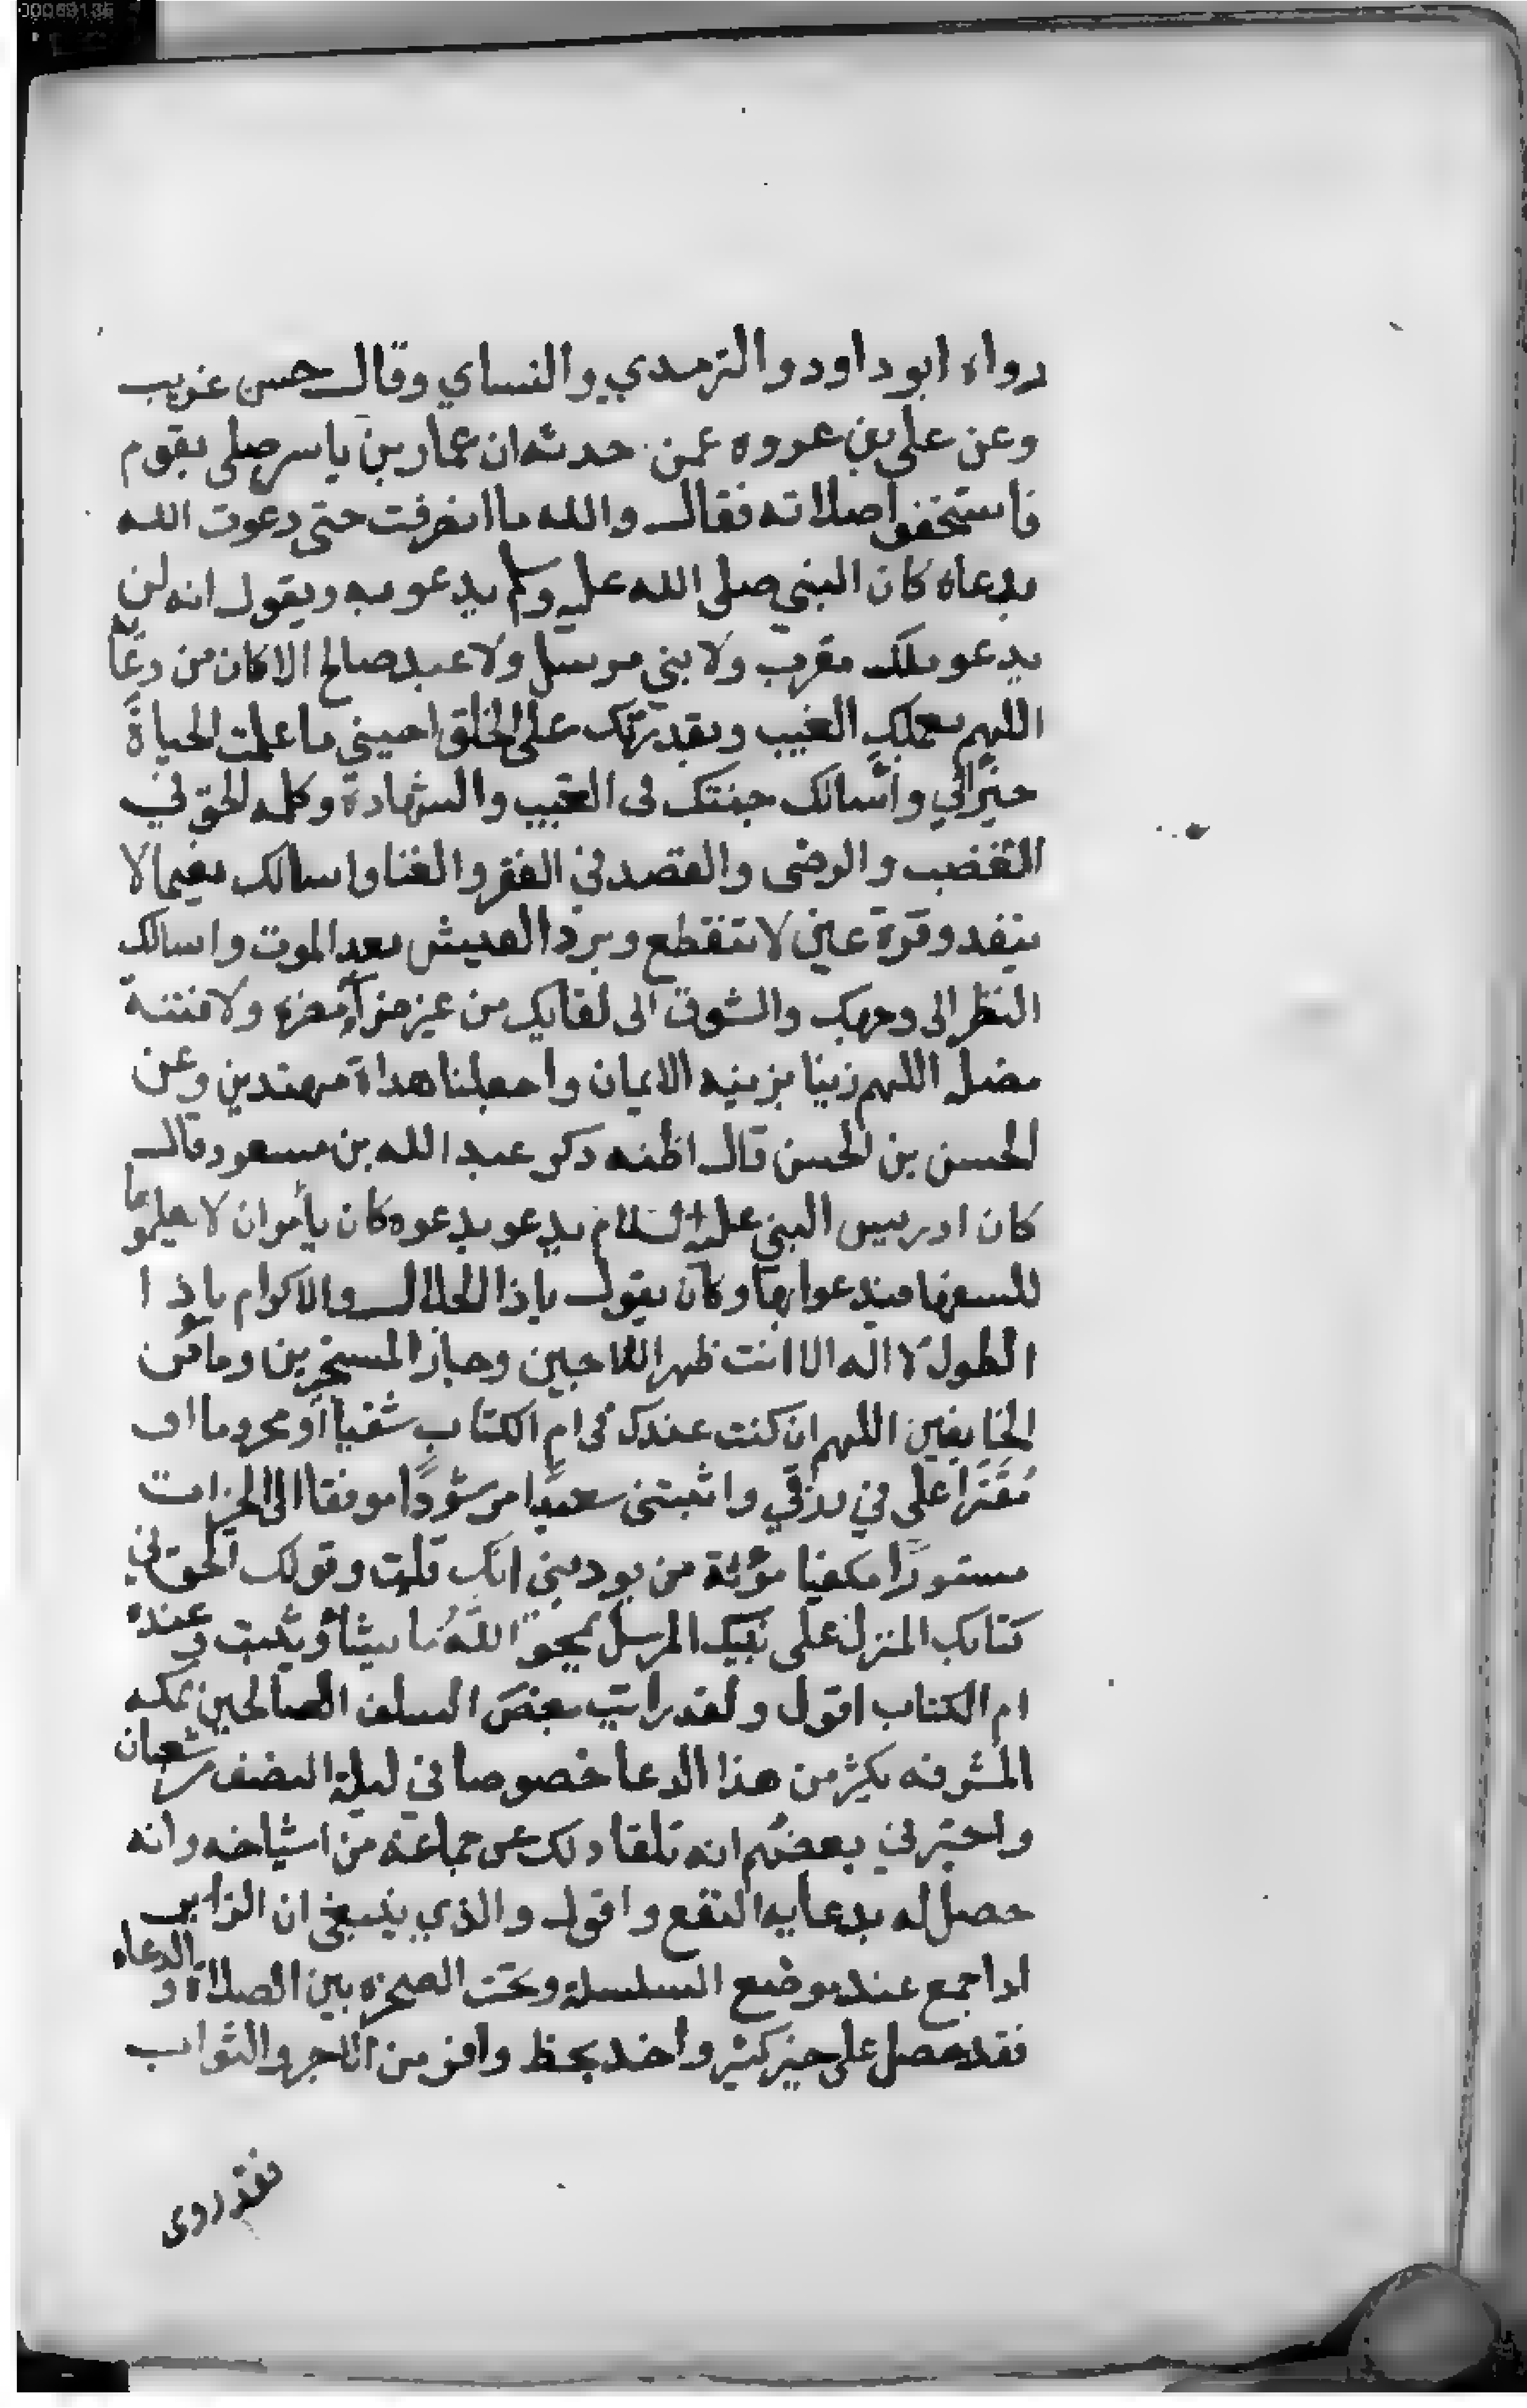 00069135
رواه ابو داود والترمدي والنساي وقال حسن غريب
وعن علي بن عروه عمن حدثه ان عمار بن ياسر صلى بقوم
فاستخفوا صلاته فقال والله ما انصرفت حتى دعوت الله
بدعاء كان النبي صلى الله عليه وسلم يدعو به ويقول انه لن
يدعو ملك مقرب ولا نبي مرسل ولا عبد صالح الا كان من دعايه
اللهم بعلمك الغيب وبقدرتك على الخلق احيني ما علمت الحياة
خيرا لي واسالك خشيتك في الغيب والشهادة وكلمه الحق في
الغضب والرضى والقصد في الفقر والغنا واسالك نعيما لا
ينفد وقرة عين لا تنقطع وبرد العيش بعد الموت واسالك
النظر الى وجهك والشوق الى لقايك من غير ضرآء مضره ولا فتنة
مضله اللهم زينا بزينه الايمان واجعلنا هداة مهتدين وعن
الحسن بن الحسن قال اظنه ذكر عبد الله بن مسعود قال
كان ادريس النبي عليه السلام يدعو بدعوه كان يأمر ان لا يعلموها
للسفها فيدعوا بها وكان يقول ياذا الجلال والاكرام ياذا
الطول لا اله الا انت ظهر اللاجين وجار المستجيرين ومأمن
الخايفين اللهم ان كنت عندك في ام الكتاب شقيا او محروما او
مُقَتَّرا علي في رزقي واثبتني سعيدًا مرشودًا موفقا الى الخيرات
مستورًا مكفيا مؤنة من يوديني انك قلت وقولك الحق في
كتابك المنزل على نبيك المرسل يمحو اللهُ ما يشأ ويثبت وعنده
ام الكتاب اقول ولقد رايت بعض السلف الصالحين بمكه
المشرفه يكثر من هذا الدعا خصوصا في ليلة النصف من شعبان
واخبرني بعضهم انه تلقا ذلك عن جماعة من اشياخه وانه
حصل له بدعايه النفع واقول والذي ينبغي ان الزاير
اذا جمع عند موضع السلسلة وتحت الصخره بين الصلاة والدعاء
فقد حصل على خير كثير وأخذ بحظ وافر من الاجر والثواب
فقد روى